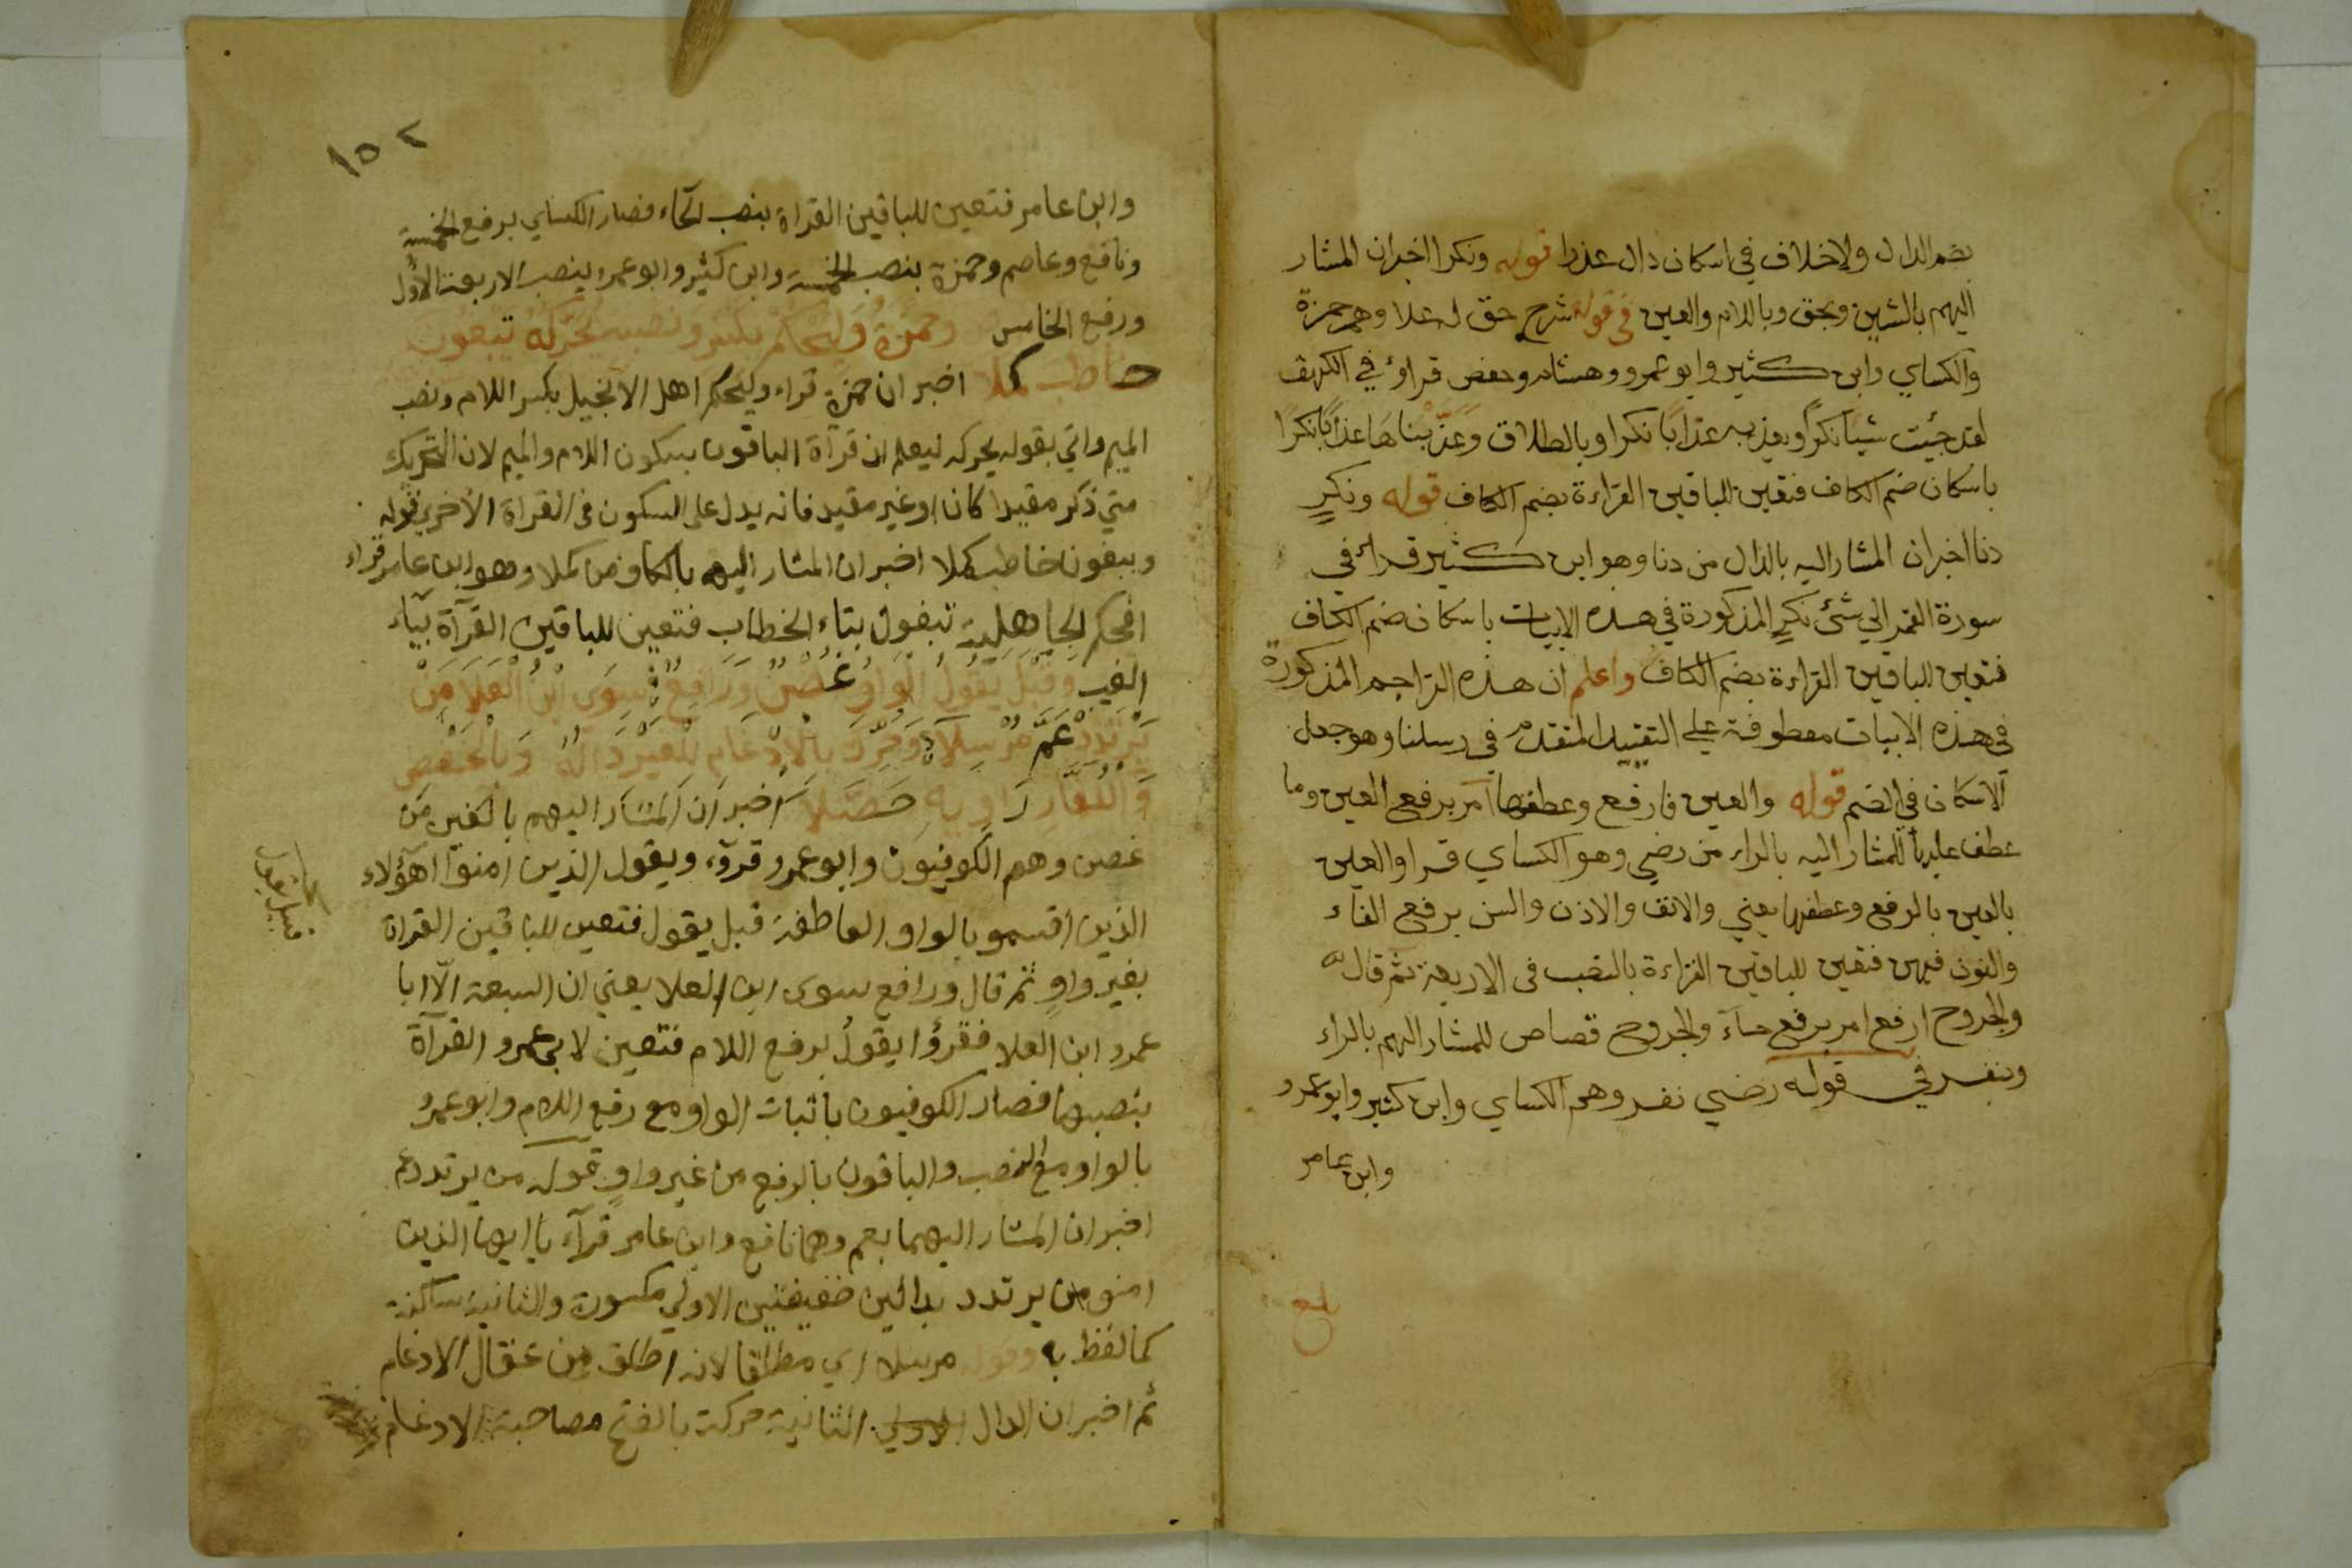 بضم الدال ولاخلاف في اسكان ذال عذرا قوله ونكرا اخبران المشار
اليهم بالشين وبحق وباللام والعين في قوله شرح حق له علا وهم حمزة
والكساي وابن كثير وابو عمرو وهشام وحفص قراؤ في الكهف
لقد جئت شيأ نكرا ويعذبه عذابا نكرا وبالطلاق وعذبناها عذابا نكرا
باسكان ضم الكاف فتعين للباقين القراءة بضم الكاف قوله ونكر
دنا اخبران المشار اليه بالدال من دنا وهو ابن كثير قراء في
سورة القمر الي شئ نكر المذكورة في هذه الابيات باسكان ضم الكاف
فتعين للباقين القراءة بضم الكاف واعلم ان هذه التراجم المذكورة
في هذه الابيات معطوفة علي التقييد المتقدم في رسلنا وهو جعل
الاسكان في الضم قوله والعين فارفع وعطفها امر برفع العين وما
عطف عليها للمشار اليه بالراء من رضي وهو الكساي قرا والعين
بالعين بالرفع وعطفها يعني والانف والاذن والسن برفع الفاء
والنون فيهن فتعين للباقين القراءة بالنصب في الاربعة ثم قال
والجروح ارفع امر برفع حاء والجروح قصاص للمشار اليهم بالراء
وبنفر في قوله رضي نفر وهم الكساي وابن كثير وابو عمرو
وابن عامر
بلغ
١٥٢
وابن عامر فتعين للباقين القراة بنصب الحاء فصار الكساي برفع الخمسة
ونافع وعاصم وحمزة بنصب الخمسة وابن كثير وابو عمرو بنصب الاربعة الاول
ورفع الخامس وحمزة وليحكم بكسر ونصبه يحركه تبغون
خاطب كملا اخبر ان حمزة قراء وليحكم اهل الانجيل بكسر اللام ونصب
الميم واتي بقوله يحركه ليعلم ان قراة الباقون بسكون اللام والميم لان التحريك
متي ذكر مقيدا كان او غير مقيد فانه يدل على السكون في القراة الاخري قوله
ويبغون خاطب كملا اخبر ان المشار اليه بالكاف من كملا وهو ابن عامر قراء
افحكم الجاهلية تبغون بتاء الخطاب فتعين للباقين القرآة بياء
الغيب وقبل يقول الواو غصن ورافع سوى ابن العلا من
يرتدد عم مرسلا وحرك بالادغام للغير داله وبالخفض
والكفار راويه حصلا اخبر ان المشار اليهم بالغين من
غصن وهم الكوفيون وابو عمرو قروء ويقول الذين امنوا اهؤلاء
الذين اقسمو بالواو العاطفة قبل يقول فتعين للباقين القراة
بغير واو ثم قال ورافع سوى ابن العلا يعني ان السبعة الا ابا
عمرو ابن العلا فقرؤا يقول برفع اللام فتعين لابي عمرو القرآة
بنصبها فصار الكوفيون باثبات الواو مع رفع اللام وابو عمرو
بالواو مع النصب والباقون بالرفع من غير واو قوله من يرتدد عم
اخبر ان المشار اليهما بعم وهما نافع وابن عامر قرآء يا ايها الذين
امنو من يرتدد بدالين خفيفتين الاولي مكسورة والثانية ساكنة
كما لفظ به وقوله مرسلا اي مطلقا لانه اطلق من عقال الادغام
ثم اخبر ان الدال الثانية حركت بالفتح مصاحبة الادغام